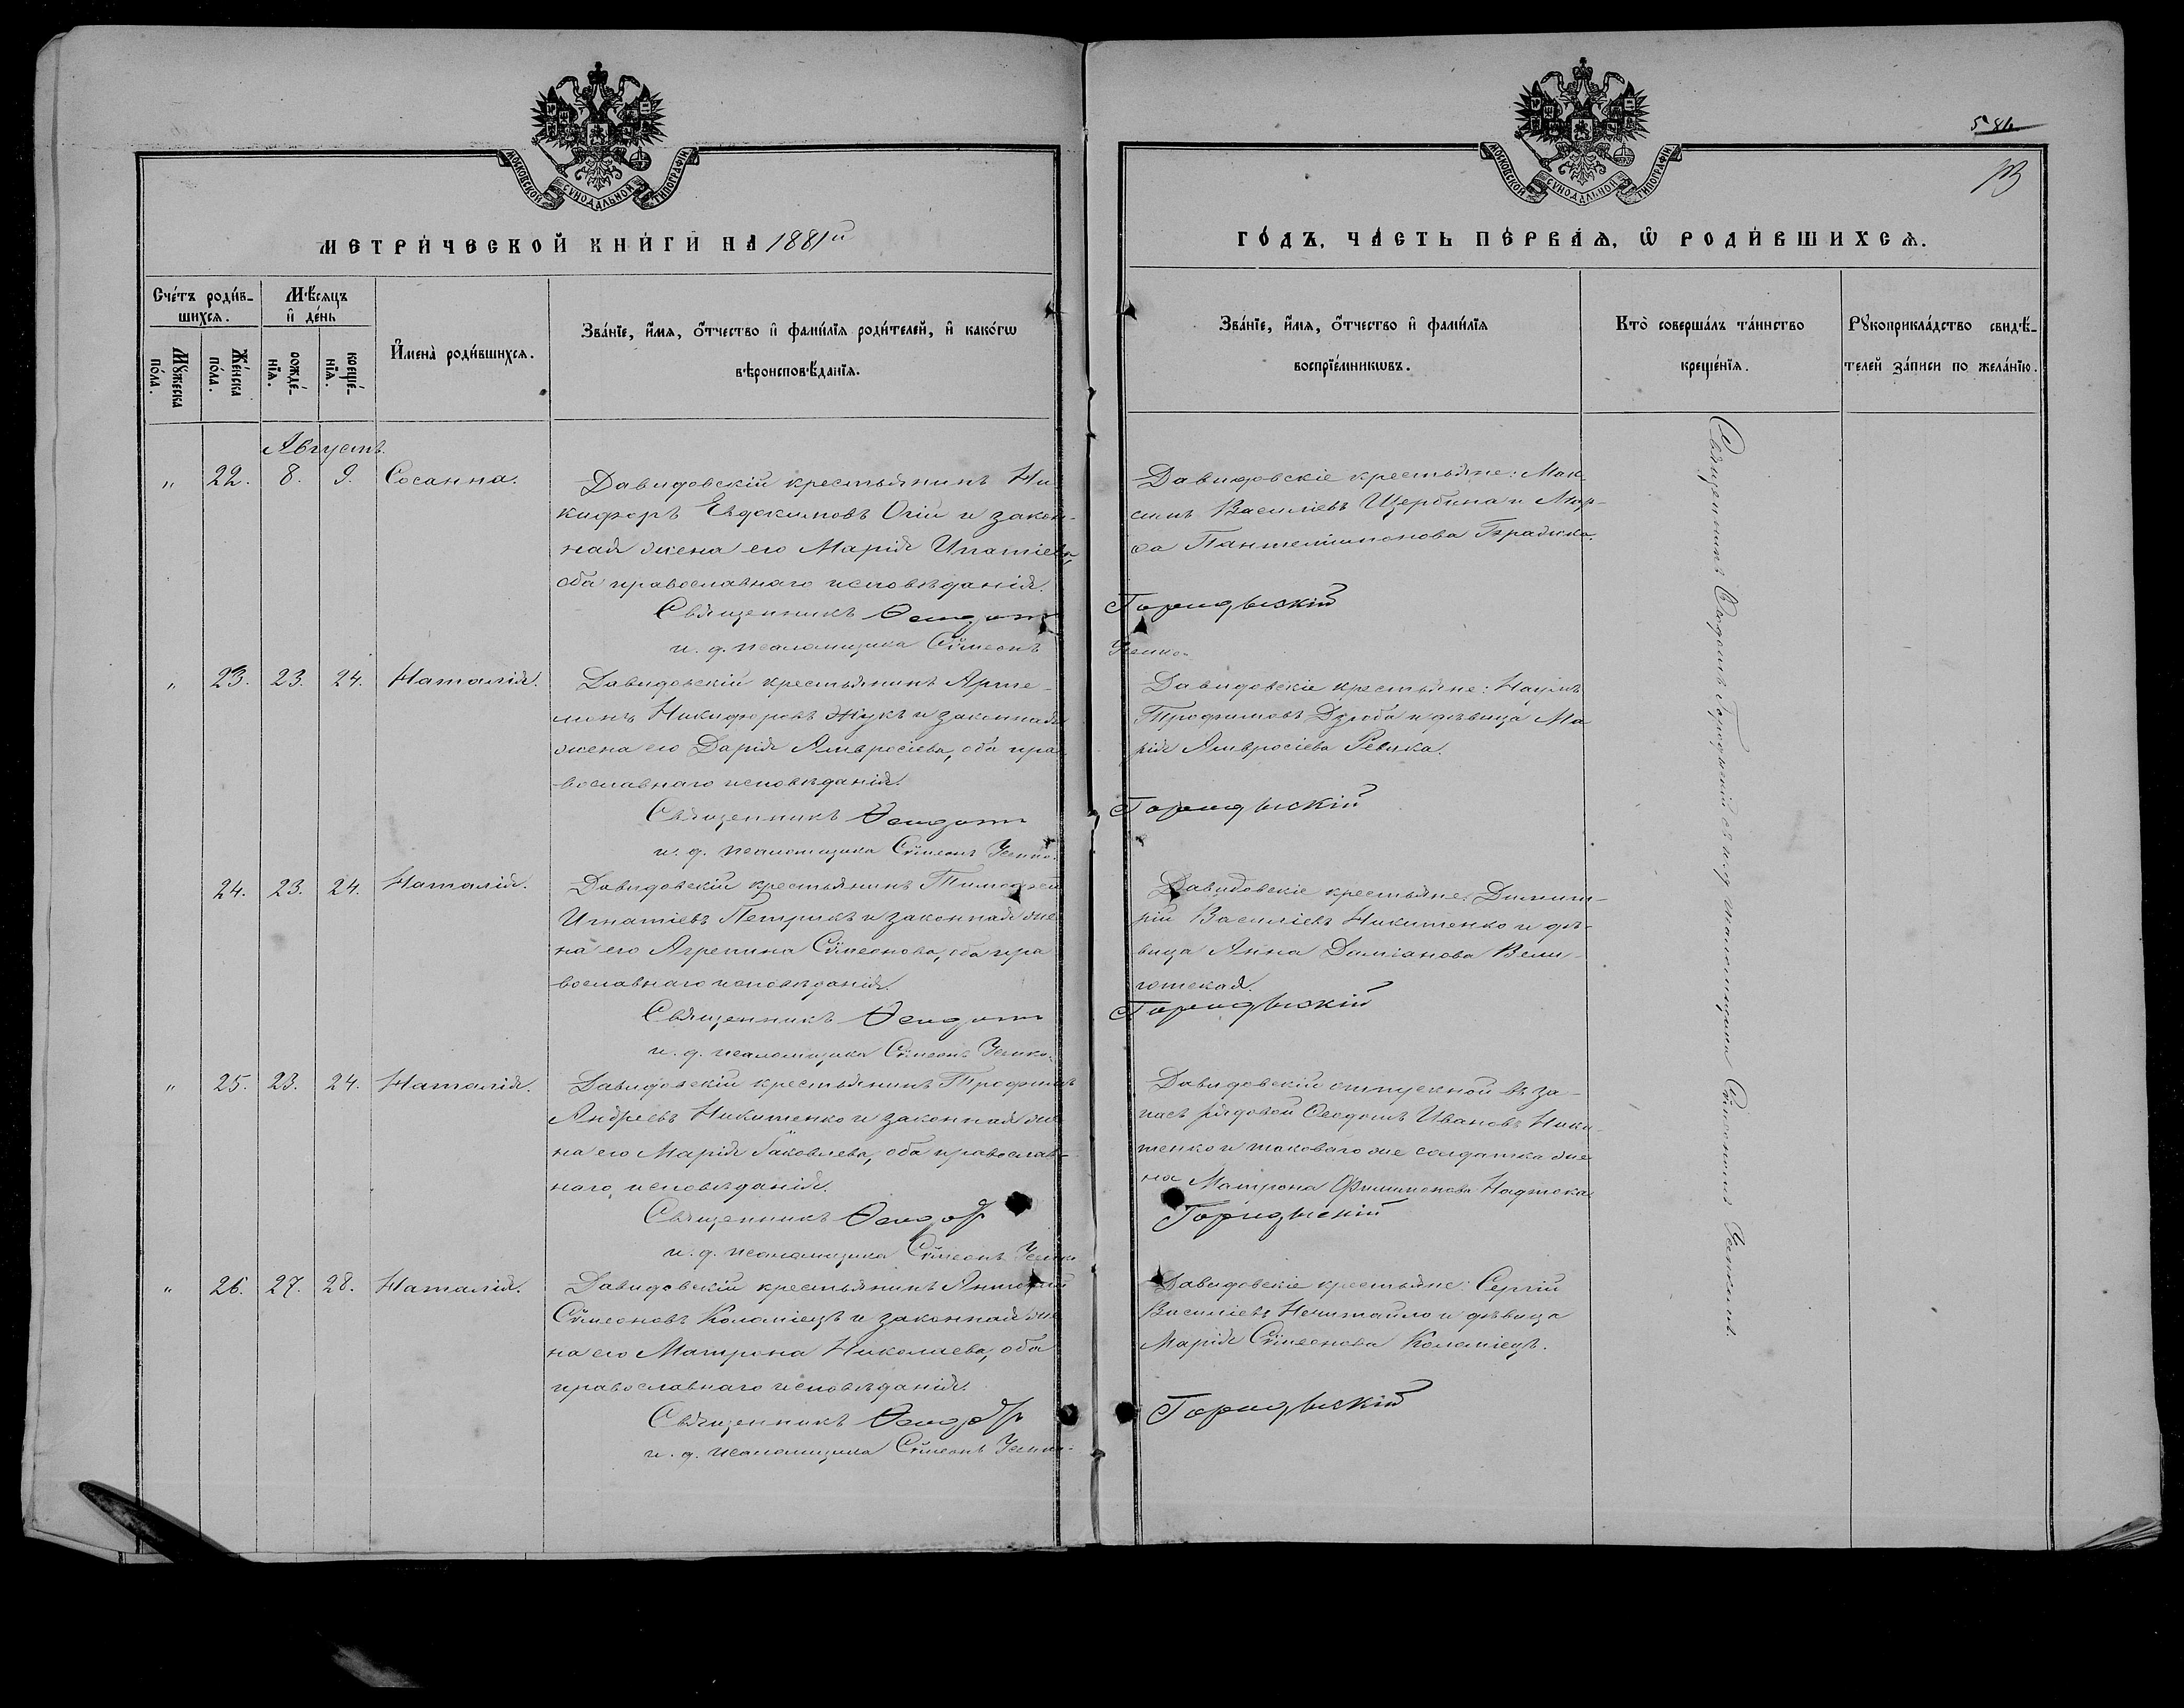 МОСКОВСКОЙ СѴНОДАЛЬНОЙ ТИПОГРАФІИ
МЕТРИ́ЧЕСКОЙ КНИ́ГИ НА 1881й
Сче́тъ роди́в-
шихсѧ.
Мꙋ́жеска
по́ла.
Же́нска
по́ла.
Мѣ́сѧцъ
и҆ де́нь
рожде́-
нїѧ.
креще́-
нїѧ.
И҆мена̀ роди́вшихсѧ.
Зва́нїе, и҆́мѧ, ѻ҆́тчество и҆ фами́лїѧ роди́телей, и҆ како́гѡ
вѣроисповѣ́данїѧ.
Августъ.
" 22. 8. 9. Сосанна.
Давидовскій крестьянинъ Ни-
кифоръ Евдокимовъ Огій и закон-
ная жена его Марія Игнатіева,
оба православнаго исповѣданія.
Священникъ Ѳеодотъ
и. д. псаломщика Сѷмеонъ
" 23. 23. 24. Наталія.
Давидовскій крестьянинъ Арте-
монъ Никифоровъ Жукъ и законная
жена его Дарія Амвросіева, оба пра-
вославнаго исповѣданія.
Священникъ Ѳеодотъ
и. д. псаломщика Сѷмеонъ Усенко.
24. 23. 24. Наталія.
Давидовскій крестьянинъ Тимофей
Игнатіевъ Петрикъ и законная же-
на его Агрепина Сѷмеонова, оба пра-
вославнаго исповѣданія.
Священникъ Ѳеодотъ
и. д. псаломщика Сѷмеонъ Усенко.
" 25. 23. 24. Наталія.
Давидовскій крестьянинъ Трофимъ
Андреевъ Никитенко и законная же-
на его Марія Іаковлева, оба православ-
наго исповѣданія.
Священникъ Ѳеодотъ
и. д. псаломщика Сѷмеонъ Усенко
" 26. 27. 28. Наталія.
Давидовскій крестьянинъ Антоній
Сѷмеоновъ Коломіецъ и законная же-
на его Матрона Николаева, оба
православнаго исповѣданія.
Священникъ Ѳеодотъ
и. д. псаломщика Сѷмеонъ Усенко.
584
МОСКОВСКОЙ СѴНОДАЛЬНОЙ ТИПОГРАФІИ
ГО́ДЪ, ЧА́СТЬ ПЕ́РВАѦ, Ѽ РОДИ́ВШИХСѦ.
Зва́нїе, и҆́мѧ, ѻ҆́тчество и҆ фами́лїѧ
воспрїе́мникѡвъ.
Кто̀ соверша́лъ та́инство
креще́нїѧ.
Рꙋкоприкла́дство свидѣ́-
телей за́писи по жела́нїю.
Давидовскіе крестьяне: Мак-
симъ Василіевъ Щербина и Мар-
ѳа Пантелеимонова
Горидыскій
Усенко.
Давидовскіе крестьяне: Наумъ
Трофимовъ Дзюба и дѣвица Ма-
рія Амвросіева Ревяка.
Горидыскій
Давидовскіе крестьяне: Димит-
рій Василіевъ Никитенко и дѣ-
вица Анна Даміанова Вели-
готская.
Горидыскій
Давидовскій отпускной въ за-
пасъ рядовой Ѳеодотъ Ивановъ Ники-
тенко и таковаго же солдатка же-
на Матрона Филимонова
Горидыскій
Давидовскіе крестьяне: Сергій
Василіевъ Непитайло и дѣвица
Марія Сѷмеонова Коломіецъ.
Горидыскій
Священникъ Ѳеодотъ Горидыскій съ и. д. псаломщика Сѷмеономъ Усенкомъ.